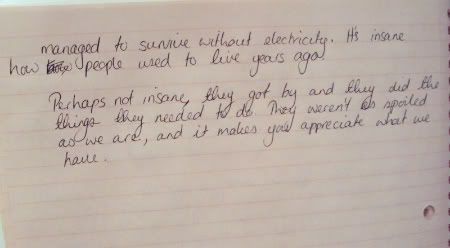 managed to survive without electricity. It's insane
how people used to live years ago.
Perhaps not insane, they got by and they did the
things they needed to do. They weren't as spoiled
as we are, and it makes you appreciate what we
have.